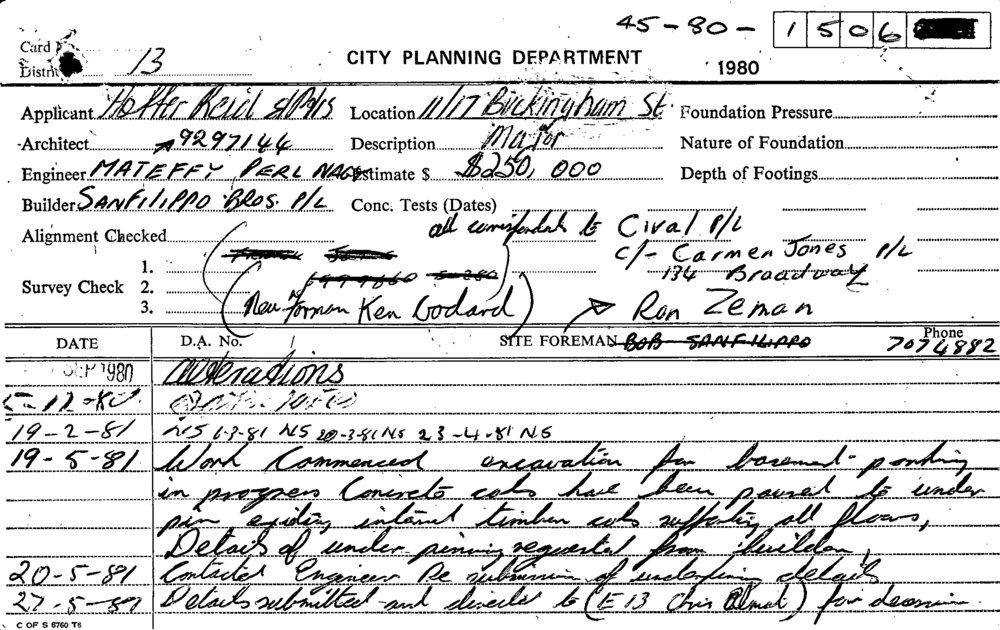 45-80- 1506
Card
District 13
CITY PLANNING DEPARTMENT
1980
Applicant Hoffer Reid Location 11/17 Buckingham St Foundation Pressure
Architect 9297144 Description Major Nature of Foundation
Engineer MATEFFY PERL NAGY Estimate $ $250,000 Depth of Footings
Builder SANFILIPPO BROS. P/L Conc. Tests (Dates)
Alignment Checked all to Cival P/L
C/- Carmen Jones P/L
134 Broadway
Survey Check 1.
2.
3. (New Forman Ken Godard) Ron Zeman
DATE D.A. No. SITE FOREMAN BOB SANFILIPPO Phone 7074882
SEP 1980 alterations
5-12-80
19-2-81 NS 6-3-81 NS 20-3-81 NS 23-4-81 NS
19-5-81 Work Commenced excavation for basement parking
in progress Concrete cols have been poured to under
pin existing internal timber cols supporting all floors,
Details of under pinning requested from builder,
20-5-81 Contacted Engineer Re submission of underpinning details
27-5-81 Details submitted and directed to (E 13 Chris) for decision
C OF S 6760 T6